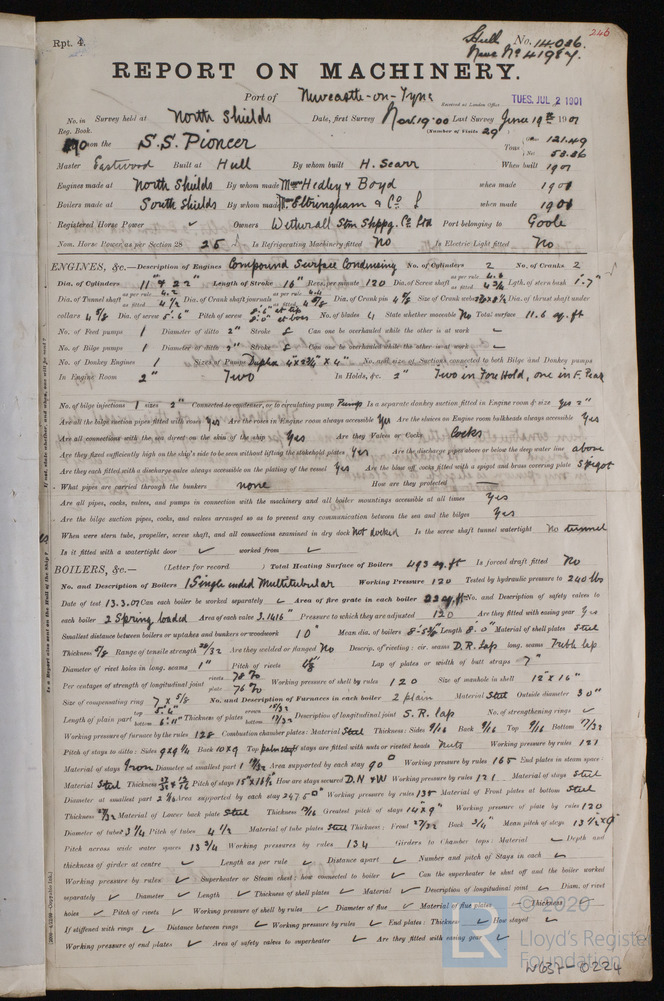 246
Rpt. 4.
Hull No. 14.036.
Newc No 41987.
REPORT ON MACHINERY.
Port of Newcastle-on-Tyne
Received at London Office TUES. JUL 2 1901
No. in Survey held at North Shields Date, first Survey Last Survey June 19th 1901
Reg. Book. (Number of Visits 29)
on the S.S. Pioneer Tons Gross 121.49
Net 53.36
Master Eastwood Built at Hull By whom built H. Scarr When built 1901
Engines made at North Shields By whom made Mess Hedley & Boyd when made 1901
Boilers made at South Shields By whom made J. Eltringham & Co when made 1901
Registered Horse Power Owners Wetherall Stm Shppg. Co Ltd Port belonging to Goole
Nom. Horse Power as per Section 28 25 Is Refrigerating Machinery fitted No Is Electric Light fitted No
ENGINES, &c.—Description of Engines Compound Surface Condensing No. of Cylinders 2 No. of Cranks 2
Dia. of Cylinders 11 & 22" Length of Stroke 16" Revs. per minute 120 Dia. of Screw shaft as per rule as fitted Lgth. of stern bush 1.7"
Dia. of Tunnel shaft as per rule 4.2 as fitted 4 1/2 Dia. of Crank shaft journals as per rule as fitted Dia. of Crank pin 4 7/8 Size of Crank webs Dia. of thrust shaft under
collars 4 7/8 Dia. of screw 5.6" Pitch of screw No. of blades 4 State whether moveable No Total surface 11.6 sq. ft
No. of Feed pumps 1 Diameter of ditto 2" Stroke 8 Can one be overhauled while the other is at work
No. of Bilge pumps 1 Diameter of ditto 2" Stroke 8 Can one be overhauled while the other is at work
No. of Donkey Engines 1 Sizes of Pumps Duplex 4 x 2 3/4" x 4" No. and size of Suctions connected to both Bilge and Donkey pumps
In Engine Room 2" Two In Holds, &c. 2" Two in Fore Hold, one in F. Peak
No. of bilge injections 1 sizes 2" Connected to condenser, or to circulating pump Pump Is a separate donkey suction fitted in Engine room & size yes 2"
Are all the bilge suction pipes fitted with roses yes Are the roses in Engine room always accessible yes Are the sluices on Engine room bulkheads always accessible yes
Are all connections with the sea direct on the skin of the ship yes Are they Valves or Cocks Cocks
Are they fixed sufficiently high on the ship's side to be seen without lifting the stokehold plates yes Are the discharge pipes above or below the deep water line above
Are they each fitted with a discharge valve always accessible on the plating of the vessel yes Are the blow off cocks fitted with a spigot and brass covering plate Spigot
What pipes are carried through the bunkers none How are they protected
Are all pipes, cocks, valves, and pumps in connection with the machinery and all boiler mountings accessible at all times yes
Are the bilge suction pipes, cocks, and valves arranged so as to prevent any communication between the sea and the bilges yes
When were stern tube, propeller, screw shaft, and all connections examined in dry dock Not docked Is the screw shaft tunnel watertight No tunnel
Is it fitted with a watertight door worked from
BOILERS, &c.— (Letter for record ) Total Heating Surface of Boilers 493 sq. ft Is forced draft fitted No
No. and Description of Boilers 1 Single ended Multitubular Working Pressure 120 Tested by hydraulic pressure to 240 lbs
Date of test 13.3.01 Can each boiler be worked separately Area of fire grate in each boiler 22 sq. ft No. and Description of safety valves to
each boiler 2 Spring loaded Area of each valve 3.1416" Pressure to which they are adjusted 120 Are they fitted with easing gear yes
Smallest distance between boilers or uptakes and bunkers or woodwork 10" Mean dia. of boilers Length 8'.0" Material of shell plates Steel
Thickness Range of tensile strength 28/32 Are they welded or flanged No Descrip. of riveting: cir. seams D.R. Lap long. seams Trebl lap
Diameter of rivet holes in long. seams 1" Pitch of rivets Lap of plates or width of butt straps 7"
Per centages of strength of longitudinal joint rivets 78% plate 76% Working pressure of shell by rules 120 Size of manhole in shell 12" x 16"
Size of compensating ring 7 x 5/8 No. and Description of Furnaces in each boiler 2 plain Material Steel Outside diameter 30"
Length of plain part top 5'.6" bottom 6'.11" Thickness of plates crown 15/32 bottom 17/32 Description of longitudinal joint S.R. lap No. of strengthening rings
Working pressure of furnace by the rules 128 Combustion chamber plates: Material Steel Thickness: Sides 9/16 Back 9/16 Top 9/16 Bottom 17/32
Pitch of stays to ditto: Sides 9 x 9 1/4 Back 10 x 9 Top If stays are fitted with nuts or riveted heads Nuts Working pressure by rules 121
Material of stays Iron Diameter at smallest part Area supported by each stay 90" Working pressure by rules 165 End plates in steam space:
Material Steel Thickness Pitch of stays How are stays secured D.N & W Working pressure by rules 121 Material of stays Steel
Diameter at smallest part Area supported by each stay 247.50" Working pressure by rules 135 Material of Front plates at bottom Steel
Thickness 27/32 Material of Lower back plate Steel Thickness 13/16 Greatest pitch of stays 14" x 9" Working pressure of plate by rules 120
Diameter of tubes 3 1/4 Pitch of tubes 4 1/2 Material of tube plates Steel Thickness: Front 27/32 Back 3/4" Mean pitch of stays 13 1/2 x 9"
Pitch across wide water spaces 13 3/4 Working pressures by rules 134 Girders to Chamber tops: Material Depth and
thickness of girder at centre Length as per rule Distance apart Number and pitch of Stays in each
Working pressure by rules Superheater or Steam chest; how connected to boiler Can the superheater be shut off and the boiler worked
separately Diameter Length Thickness of shell plates Material Description of longitudinal joint Diam. of rivet
holes Pitch of rivets Working pressure of shell by rules Diameter of flue Material of flue plates Thickness
If stiffened with rings Distance between rings Working pressure by rules End plates: Thickness How stayed
Working pressure of end plates Area of safety valves to superheater Are they fitted with easing gear
© 2020
Lloyd's Register
Foundation
W637-0224